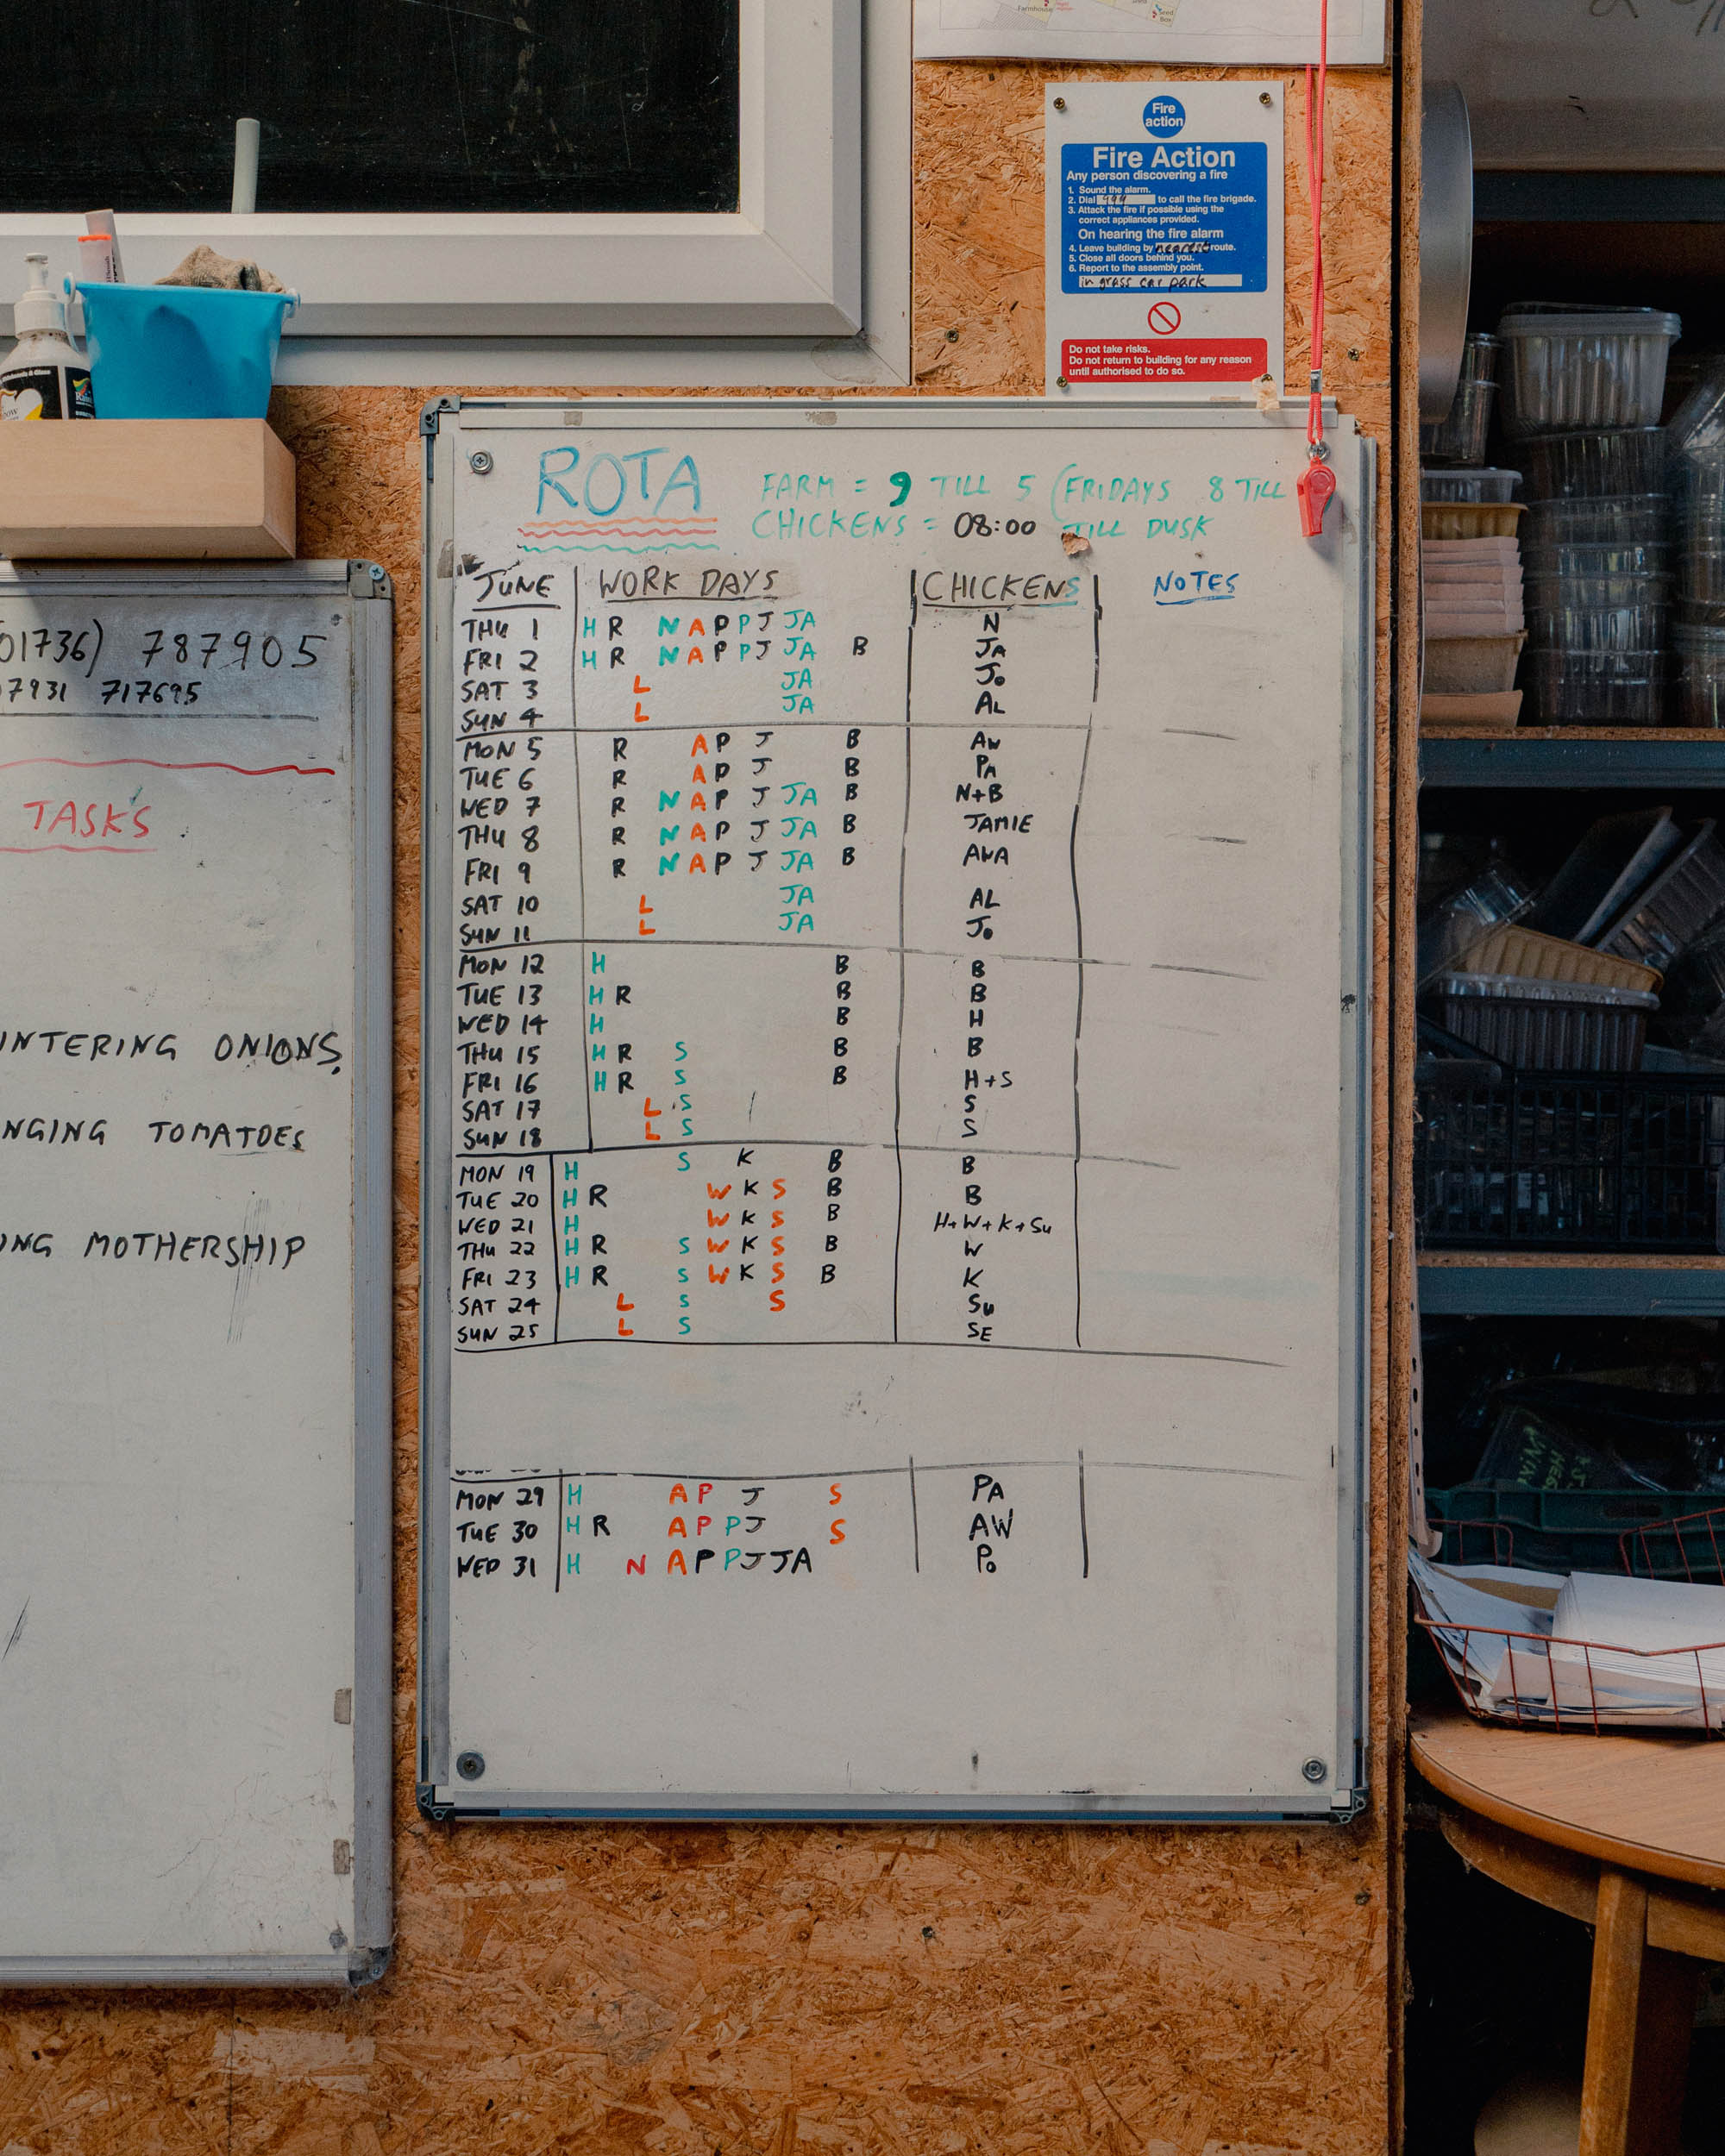 Farmhouse
Seed
Box
Fire
action
Fire Action
Any person discovering a fire
1. Sound the alarm.
2. Dial 999 to call the fire brigade.
3. Attack the fire if possible using the
correct appliances provided.
On hearing the fire alarm
4. Leave building by nearest route.
5. Close all doors behind you.
6. Report to the assembly point.
in grass car park
Do not take risks.
Do not return to building for any reason
until authorised to do so.
01736) 787905
7931 717695
TASKS
INTERING ONIONS,
NGING TOMATOES
ING MOTHERSHIP
ROTA
FARM = 9 TILL 5 (FRIDAYS 8 TILL
CHICKENS = 08:00 TILL DUSK
JUNE WORK DAYS CHICKENS NOTES
THU 1 H R N A P P J JA N
FRI 2 H R N A P P J JA B JA
SAT 3 L JA Jo
SUN 4 L JA AL
MON 5 R A P J B AW
TUE 6 R A P J B PA
WED 7 R N A P J JA B N+B
THU 8 R N A P J JA B JAMIE
FRI 9 R N A P J JA B AWA
SAT 10 L JA AL
SUN 11 L JA Jo
MON 12 H B B
TUE 13 H R B B
WED 14 H B H
THU 15 H R S B B
FRI 16 H R S B H+S
SAT 17 L S S
SUN 18 L S S
MON 19 H S K B B
TUE 20 H R W K S B B
WED 21 H W K S B H+W+K+Su
THU 22 H R S W K S B W
FRI 23 H R S W K S B K
SAT 24 L S S Su
SUN 25 L S SE
MON 29 H A P J S PA
TUE 30 H R A P P J S AW
WED 31 H N A P P J JA Po